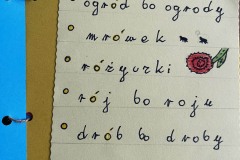 ogród bo ogrody
mrówek
różyczki
rój bo roju
drób bo droby